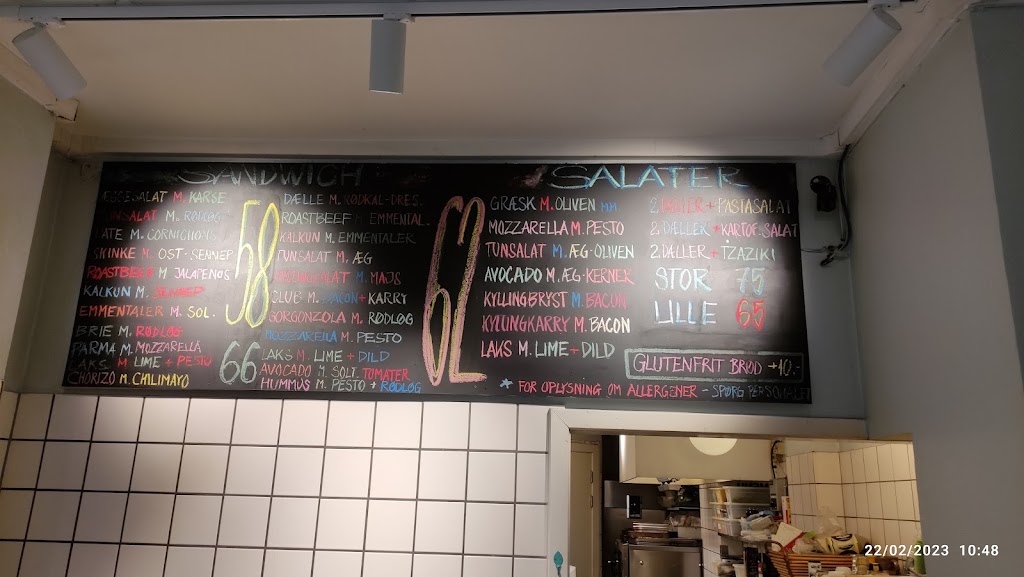 SANDWICH
ÆGGESALAT M. KARSE
TUNSALAT M. RØDLØG
PATE M. CORNICHONS
SKINKE M. OST-SENNEP
ROASTBEEF M JALAPENOS
KALKUN M. SENNEP
EMMENTALER M. SOL.
BRIE M. RØDLØG
PARMA M. MOZZARELLA
LAKS M LIME + PESTO
CHORIZO M. CHILIMAYO
58
66
DÆLLE M. RØDKÅL-DRES.
ROASTBEEF M EMMENTAL.
KALKUN M. EMMENTALER
TUNSALAT M. ÆG
M. MAJS
CLUB M. BACON + KARRY
GORGONZOLA M. RØDLØG
MOZZARELLA M. PESTO
LAKS M. LIME + DILD
AVOCADO M. SOLT. TOMATER
HUMMUS M. PESTO + RØDLØG
62
SALATER
GRÆSK M. OLIVEN MM
MOZZARELLA M. PESTO
TUNSALAT M. ÆG-OLIVEN
AVOCADO M. ÆG-KERNER
KYLLINGBRYST M. BACON
KYLLINGKARRY M. BACON
LAKS M. LIME + DILD
2 DÆLLER + PASTASALAT
2 DÆLLER + KARTOF.SALAT
2 DÆLLER + TZAZIKI
STOR 75
LILLE 65
GLUTENFRIT BRØD +10.-
* FOR OPLYSNING OM ALLERGENER - SPØRG PERSONALET
22/02/2023 10:48